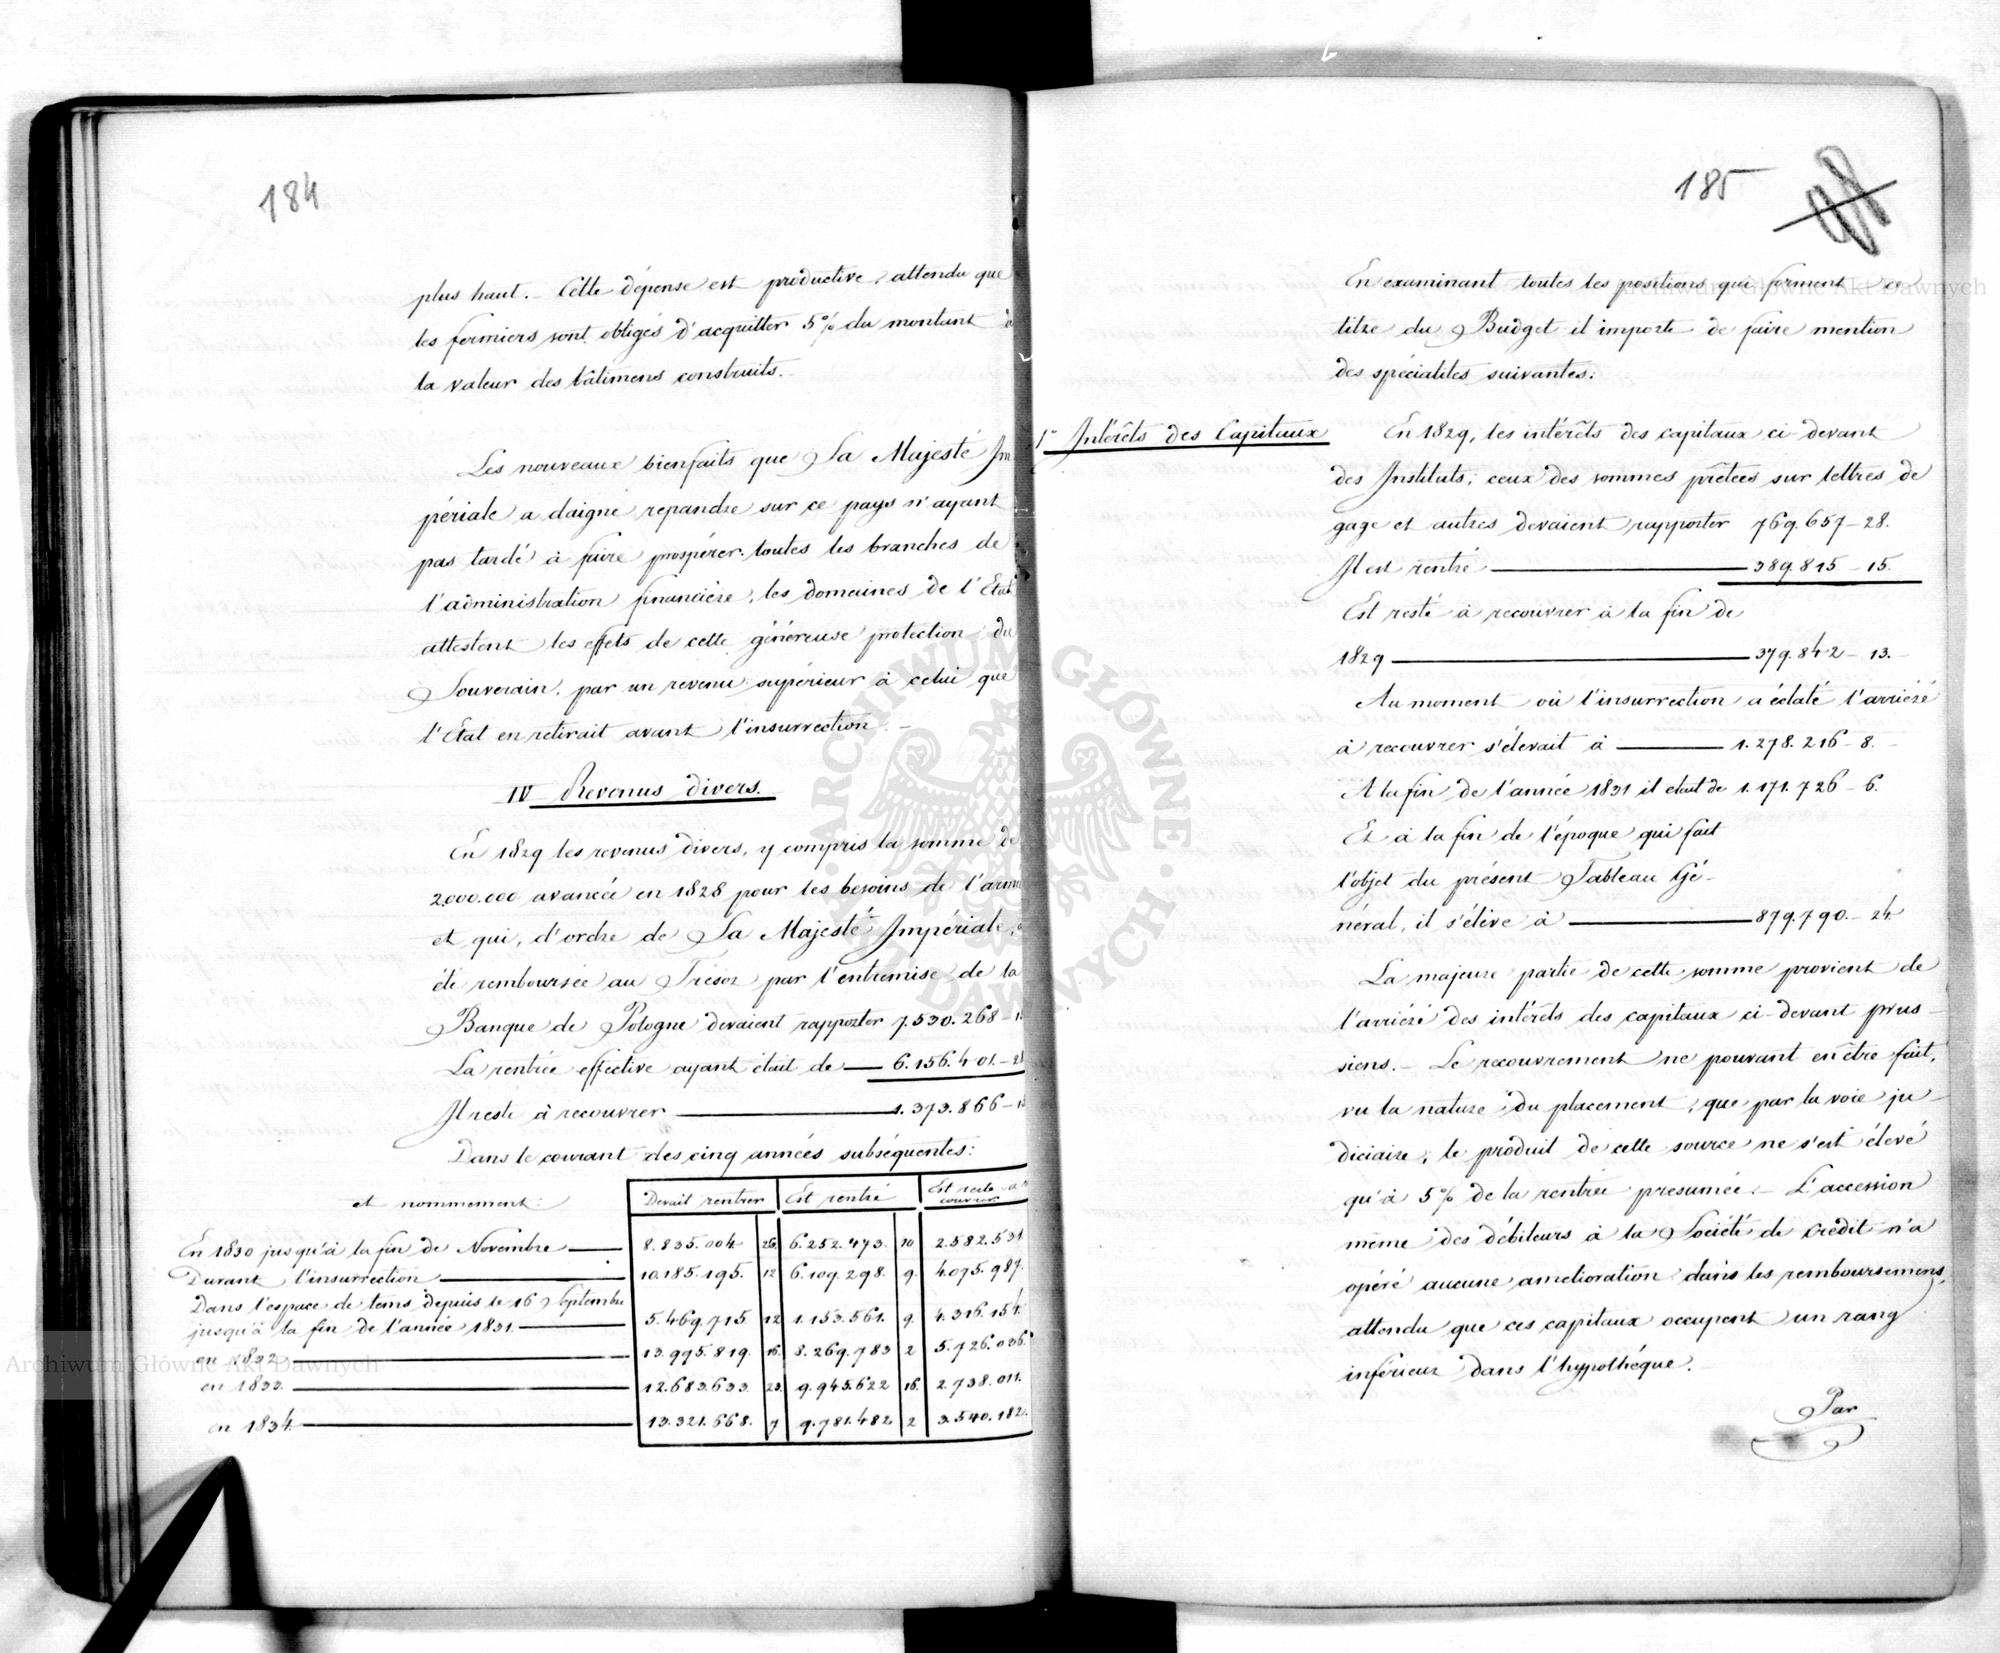 184
plus haut. Cette dépense est productive, attendu que
les fermiers sont obligés d'acquitter 5% du montant
la valeur des bâtimens construits.
Les nouveaux bienfaits que Sa Majesté Im
périale a daigné repandre sur ce pays n'ayant
pas tardé à faire prospérer toutes les branches de
l'administration financière, les domaines de l'Etat
attestent les effets de cette généreuse protection du
Souverain, par un revenu supérieur à celui que
l'Etat en retirait avant l'insurrection.
IV Revenus divers.
En 1829 les revenus divers, y compris la somme de
2.000.000 avancée en 1828 pour les besoins de l'arm
et qui, d'ordre de Sa Majesté Impériale, a
été remboursée au Trésor par l'entremise de la
Banque de Pologne devaient rapporter 7.530.268 -
La rentrée effective ayant était de — 6.156.401. -
Il reste à recouvrer — 1.373.866 -
Dans le courant des cinq années subséquentes:
et nommement: Devait rentrer Est rentré Est resté à re couvrer
En 1830 jusqu'à la fin de Novembre — 8.835.004 26 6.252.473. 10 2.582.531
Durant l'insurrection — 10.185.195. 12 6.109.298. 9. 4.075.987.
Dans l'espace de tems depuis le 16 Septembre
jusqu'à la fin de l'année 1831. — 5.469.715 12 1.153.561. 9. 4.316.154.
en 1832 — 13.995.819. 16. 8.269.783 2 5.726.036.
en 1833. — 12.683.633. 23. 9.945.622 16. 2.738.011.
en 1834. — 13.321.668. 7 9.781.482 2 3.540.182.
185
En examinant toutes les positions qui forment ce
titre du Budget il importe de faire mention
des spécialités suivantes:
1° Intérêts des Capitaux
En 1829, les intérêts des capitaux ci devant
des Instituts; ceux des sommes prêtées sur lettres de
gage et autres devaient rapporter 769.657 - 28.
Il est rentré — 389.815 - 15.
Est resté à recouvrer à la fin de
1829 — 379.842 - 13.
Au moment où l'insurrection a éclaté l'arriéré
à recouvrer s'élevait à — 1.278.216 - 8.
A la fin de l'année 1831 il était de 1.171.726 - 6.
Et à la fin de l'époque qui fait
l'objet du présent Tableau Gé-
néral, il s'élève à — 879.790. - 24
La majeure partie de cette somme provient de
l'arriéré des intérêts des capitaux ci-devant prus
siens. - Le recouvrement ne pouvant en être fait,
vu la nature du placement, que par la voie ju-
diciaire, le produit de cette source ne s'est élevé
qu'à 5% de la rentrée presumée. - L'accession
même des débiteurs à la Société de crédit n'a
opéré aucune amelioration dans les remboursemens,
attendu que ces capitaux occupent un rang
inférieur dans l'hypothéque.
Par
ARCHIWUM GŁÓWNE AKT DAWNYCH
Archiwum Główne Akt Dawnych
Archiwum Główne Akt Dawnych